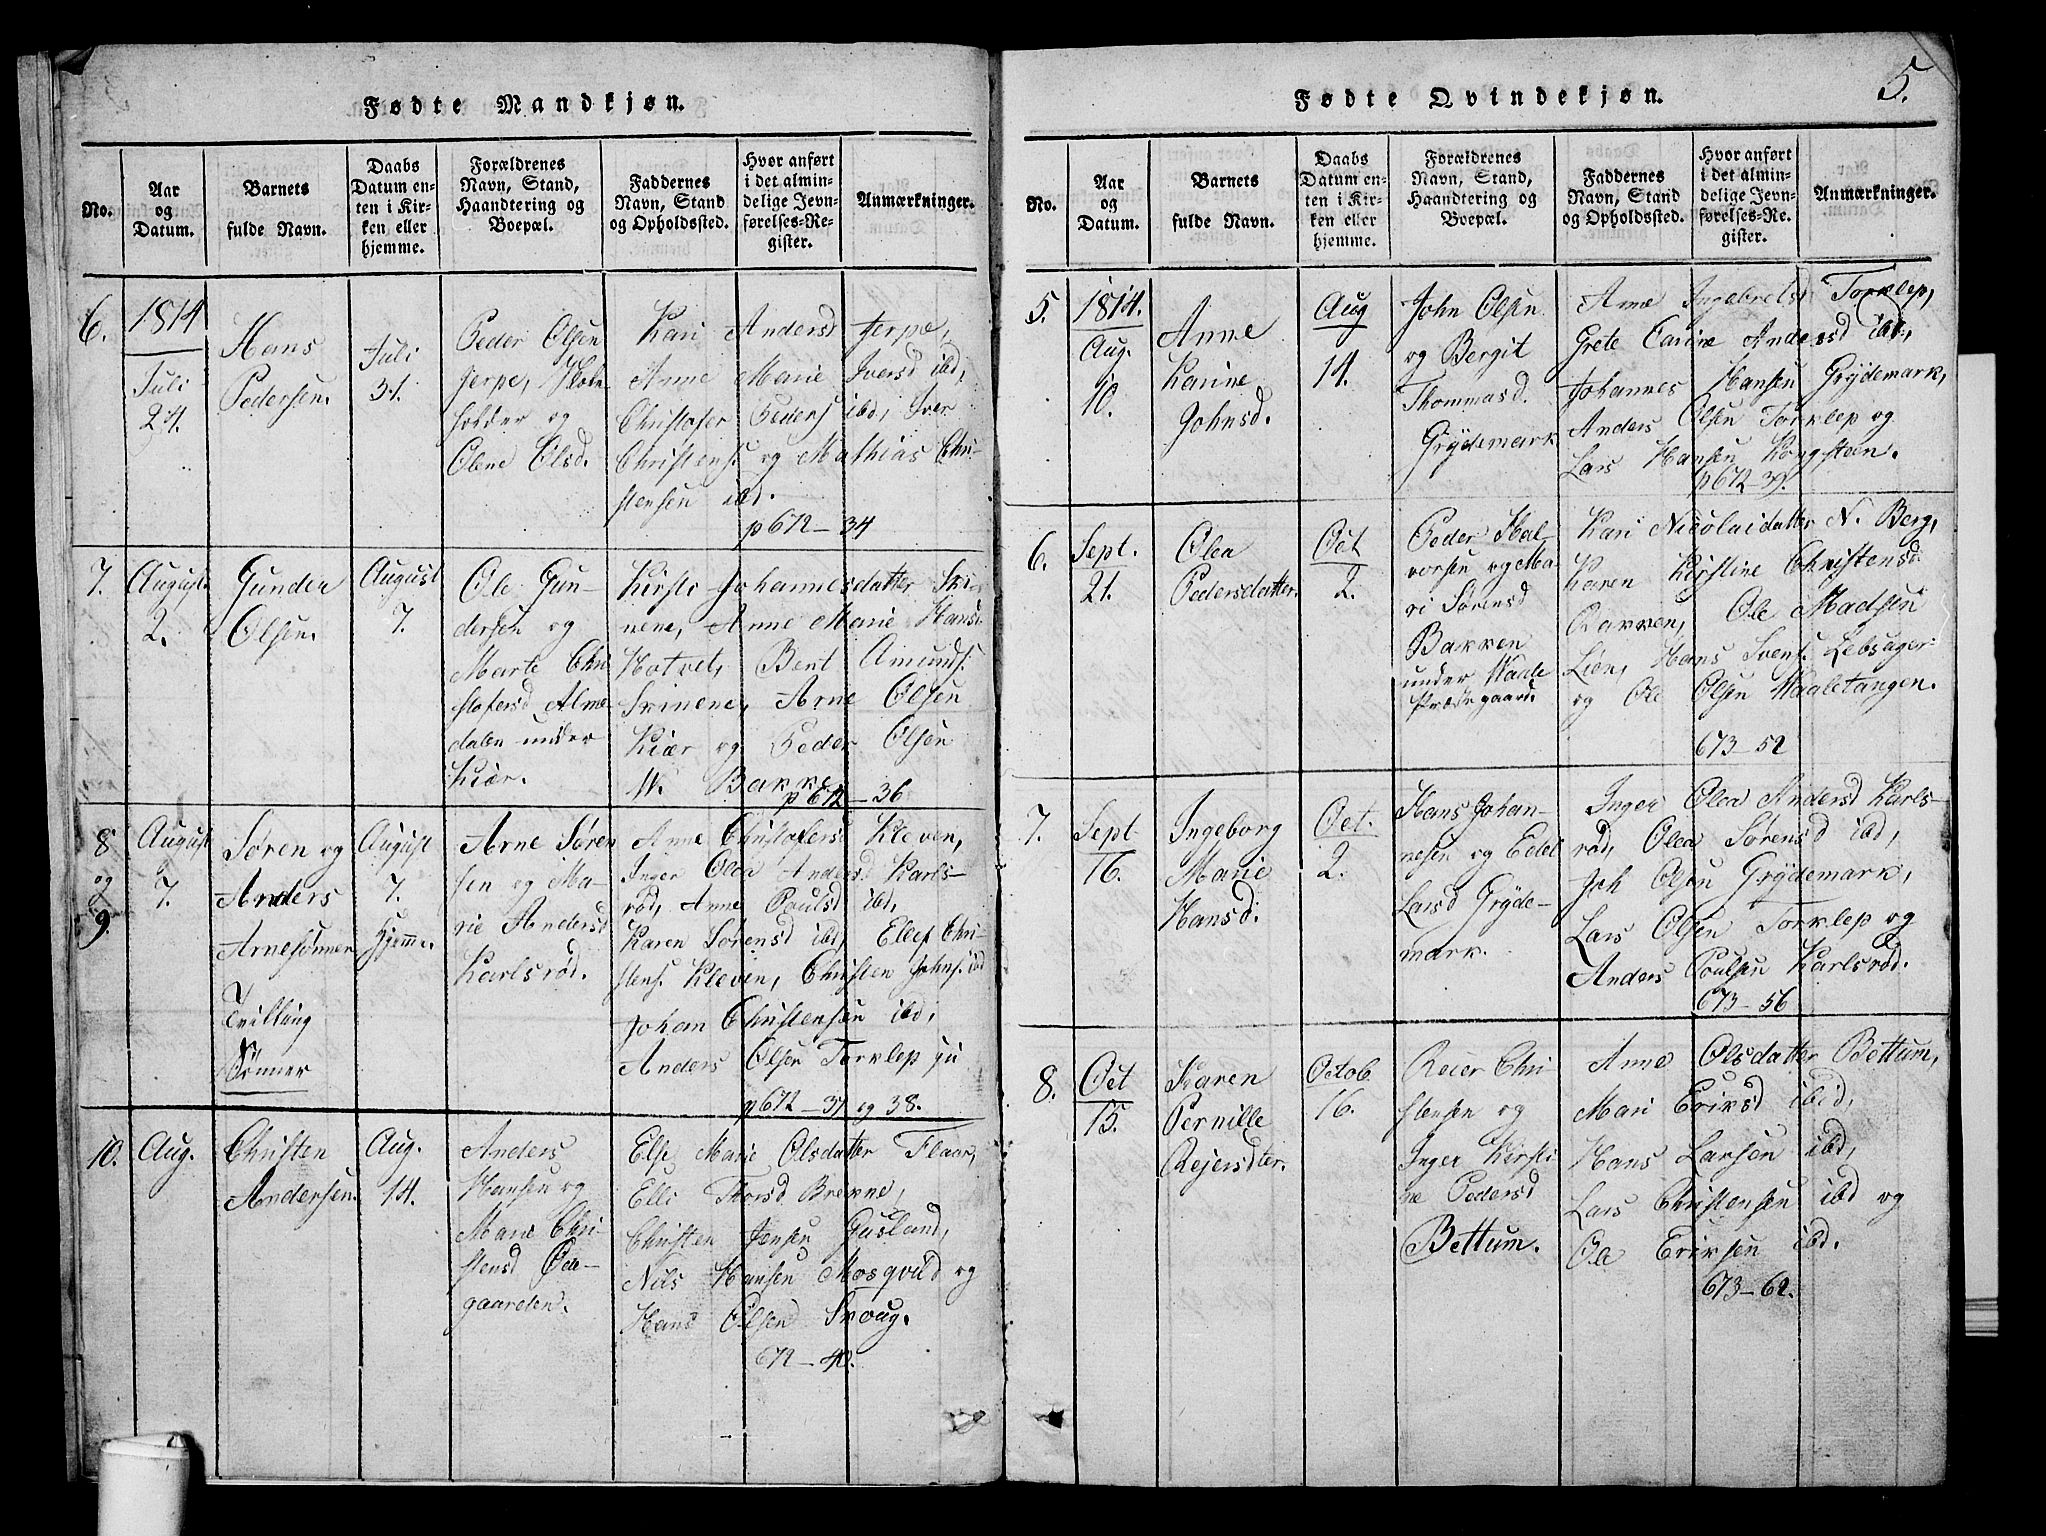 Fødte Mandkjøn.
No.
Aar
og
Datum.
Barnets
fulde Navn.
Daabs
Datum en-
ten i Kir-
ken eller
hjemme.
Forældrenes
Navn, Stand,
Haandtering og
Boepæl.
Faddernes
Navn, Stand
og Opholdssted.
Hvor anført
i det almin-
delige Jevn-
førelses-Re-
gister.
Anmærkninger.
6.
1814
Juli
24.
Hans
Pedersen.
Juli
31.
Peder Olsen
Jerpe,
holder og
Olene Olsd.
Kari Andersd Jerpe,
Anne Marie Iversd ibd,
Christofer Peders ibd, Iver
Christens. og Mathias Chri-
stensen ibd.
p 672-34
7.
August
2.
Gunder
Olsen.
August
7.
Ole Gun-
dersen og
Marte Chri
stofersd Alme
dalen under
Kiær.
Kirsti Johannesdatter Ski-
nene, Anne Marie Hans.
Hotvet, Bent Amunds.
Skinene, Arne Olsen
Kiær og Peder Olsen
W. Bakke
p 672-36
8
og
9.
August
7.
Søren og
Anders
Arnesønner
Tvilling
Sønner
August
7.
Hjemme.
Arne Søren
sen og Ma-
rie Andersd
Karlsrød.
Anne Christofersd Kleven,
Inger Olea Andersd Karls-
rød, Anne Poulsd ibd,
Karen Sørensd ibd, Ellef Chri-
stens. Kleven, Christen Johns. ibd
Johan Christensen ibd,
Anders Olsen Torklep
p 672-37 og 38.
10.
Aug.
Christen
Andersen.
Aug.
14.
Anders
Hansen og
Marie Chri-
stensd Øde-
gaarden.
Else Marie Olsdatter Flaar,
Elli Thorsd Brekne,
Christen Jensen Gusland,
Nils Hansen Mosqvild og
Hans Olsen Skoug.
672-40.
5.
Fødte Qvindekjøn.
No.
Aar
og
Datum.
Barnets
fulde Navn.
Daabs
Datum en-
ten i Kir-
ken eller
hjemme.
Forældrenes
Navn, Stand,
Haandtering og
Boepæl.
Faddernes
Navn, Stand
og Opholdssted.
Hvor anført
i det almin-
delige Jevn-
førelses-Re-
gister.
Anmærkninger.
5.
1814.
Aug.
10.
Anne
Karine
Johnsd.
Aug
14.
John Olsen
og Bergit
Thommasd.
Grydemark
Anne Ingebretsd Torklep,
Grete Carine Andersd ibd,
Johannes Hansen Grydemark,
Anders Olsen Torklep og
Lars Hansen Kongsteen.
p 672-39.
6.
Sept.
21.
Olea
Pedersdatter.
Oct
2.
Peder Hal-
vorsen og Ma-
ri Sørensd
Bakken
under Waale
Præstegaard.
Kari Nicolaidatter N. Berg,
Karen Kirstine Christensd
Bakken, Ole Madsen
Lien, Hans Svens. Lebsager
og Ole Olsen Waaletangen.
673-52
7.
Sept
16.
Ingeborg
Marie
Hansd.
Oct.
2.
Hans Johan-
nesen og Edel
Larsd Gryde-
mark.
Inger Olea Andersd Karls-
rød, Olea Sørensd ibd,
Joh Olsen Grydemark,
Lars Olsen Torklep og
Anders Poulsen Karlsrød.
673-56
8.
Oct
15.
Karen
Pernille
Rejersdter.
Octob.
16.
Reier Chri
stensen og
Inger Kirsti
ne Pedersd
Bettum.
Anne Olsdatter Bettum,
Mari Eriksd ibid,
Hans Larsen ibd,
Lars Christensen ibd og
Ole Eriksen ibd.
673-62.